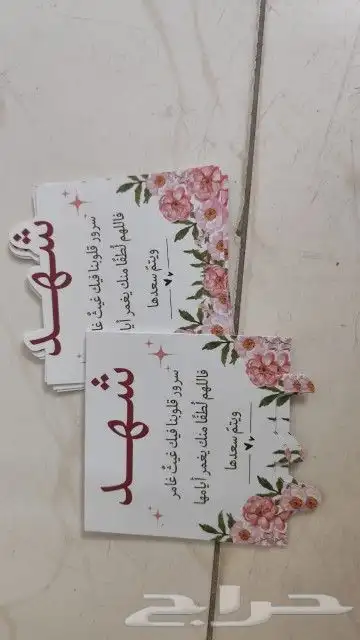 شهد
سرور قلوبنا فيك غيثٌ غا
فاللهم لُطفًا منك يغمر أيا
ويتمّ سعدها
شهد
سرور قلوبنا فيك غيثٌ غامر
فاللهم لُطفًا منك يغمر أيامها
ويتمّ سعدها
حراج